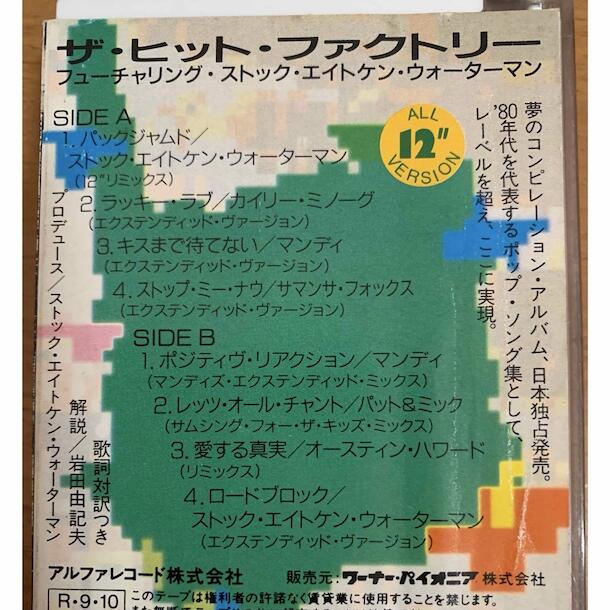 ザ・ヒット・ファクトリー
フューチャリング・ストック・エイトケン・ウォーターマン
SIDE A
1. パックジャムド／
ストック・エイトケン・ウォーターマン
(12"リミックス)
2. ラッキー・ラブ／カイリー・ミノーグ
(エクステンディッド・ヴァージョン)
3. キスまで待てない／マンディ
(エクステンディッド・ヴァージョン)
4. ストップ・ミー・ナウ／サマンサ・フォックス
(エクステンディッド・ヴァージョン)
SIDE B
1. ポジティヴ・リアクション／マンディ
(マンディズ・エクステンディッド・ミックス)
2. レッツ・オール・チャント／パット&ミック
(サムシング・フォー・ザ・キッズ・ミックス)
3. 愛する真実／オースティン・ハワード
(リミックス)
4. ロードブロック／
ストック・エイトケン・ウォーターマン
(エクステンディッド・ヴァージョン)
ALL
12"
VERSION
夢のコンピレーション・アルバム、日本独占発売。
'80年代を代表するポップ・ソング集として、
レーベルを超え、ここに実現。
プロデュース／ストック・エイトケン・ウォーターマン
解説／岩田由記夫
歌詞対訳つき
アルファレコード株式会社
販売元：ワーナー・パイオニア株式会社
R・9・10
このテープは権利者の許諾なく賃貸業に使用することを禁じます。